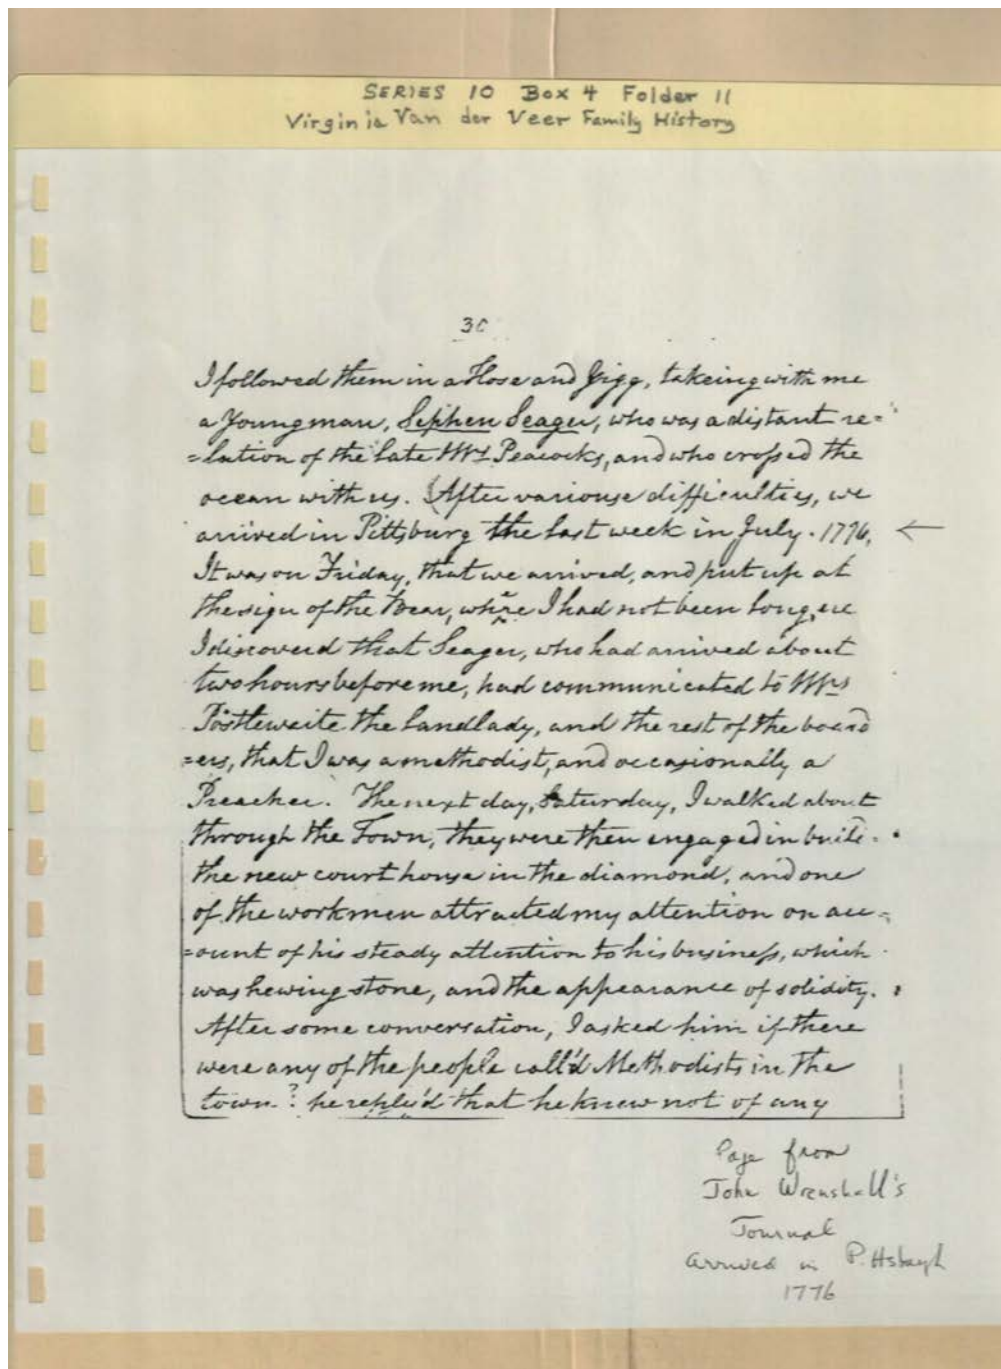 SERIES 10 Box 4 Folder 11
Virginia Van der Veer Family History
30
I followed them in a Hose and Gigg, takeing with me
a Young man, Sephen Seager, who was a distant re=
=lation of the late Mrs Peacocks, and who crossed the
ocean with us. (After variouse difficulties, we
arrived in Pittsburg the last week in July. 1796,
It was on Friday, that we arrived, and put up at
the sign of the Bear, where I had not been long, ere
I discoverd that Seager, who had arrived about
two hours before me, had communicated to Mrs
Postlewaite the landlady, and the rest of the board
=ers, that I was a methodist, and occasionally a
Preacher. The next day, Saturday, I walked about
through the Town, they were then engaged in build.
the new court house in the diamond, and one
of the workmen attracted my attention on acc=
=ount of his steady attention to his business, which
was hewing stone, and the appearance of solidity.
After some conversation, I asked him if there
were any of the people call'd Methodists in the
town? he reply'd that he knew not of any
Page from
John Wrenshall's
Journal
arrived in Pittsburgh
1776